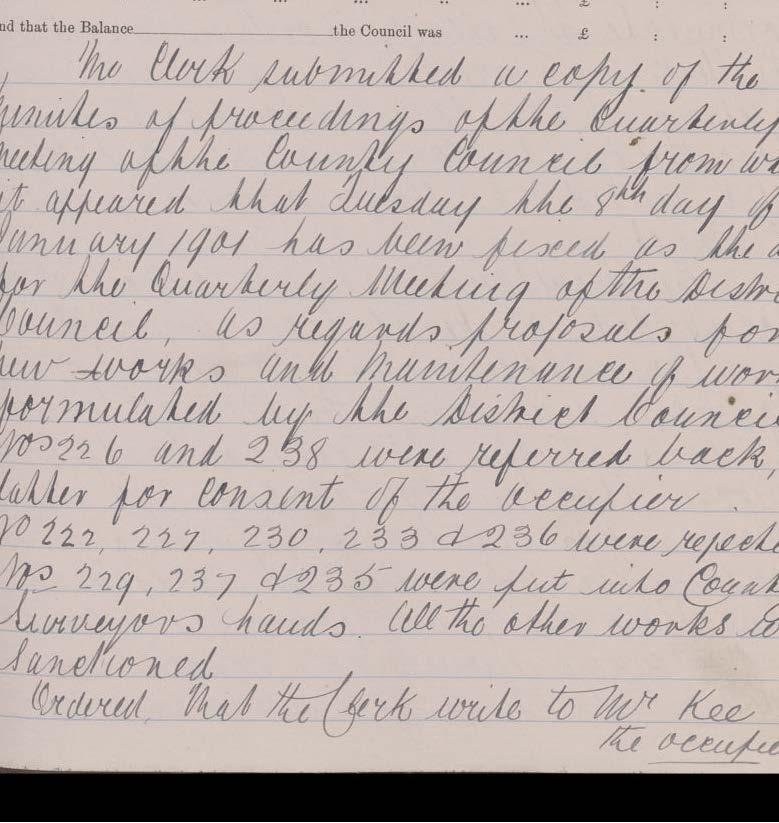 ... ... ... .. ... £ : :
nd that the Balance the Council was ... £ : :
The Clerk submitted a copy of the
minutes of proceedings of the Quarterly
meeting of the County Council from w
it appeared that Tuesday the 8th day of
January 1901 has been fixed as the d
for the Quarterly Meeting of the Distri
Council, as regards proposals for
new works and Maintenance of wor
formulated by the District Counci
Nos 226 and 238 were referred back,
latter for consent of the occupier.
No 222, 227, 230, 233 & 236 were rejecte
Nos 229, 237 & 235 were put into Count
Surveyors hands. All the other works w
Sanctioned
Ordered, That the Clerk write to Mr Kee
the occupie